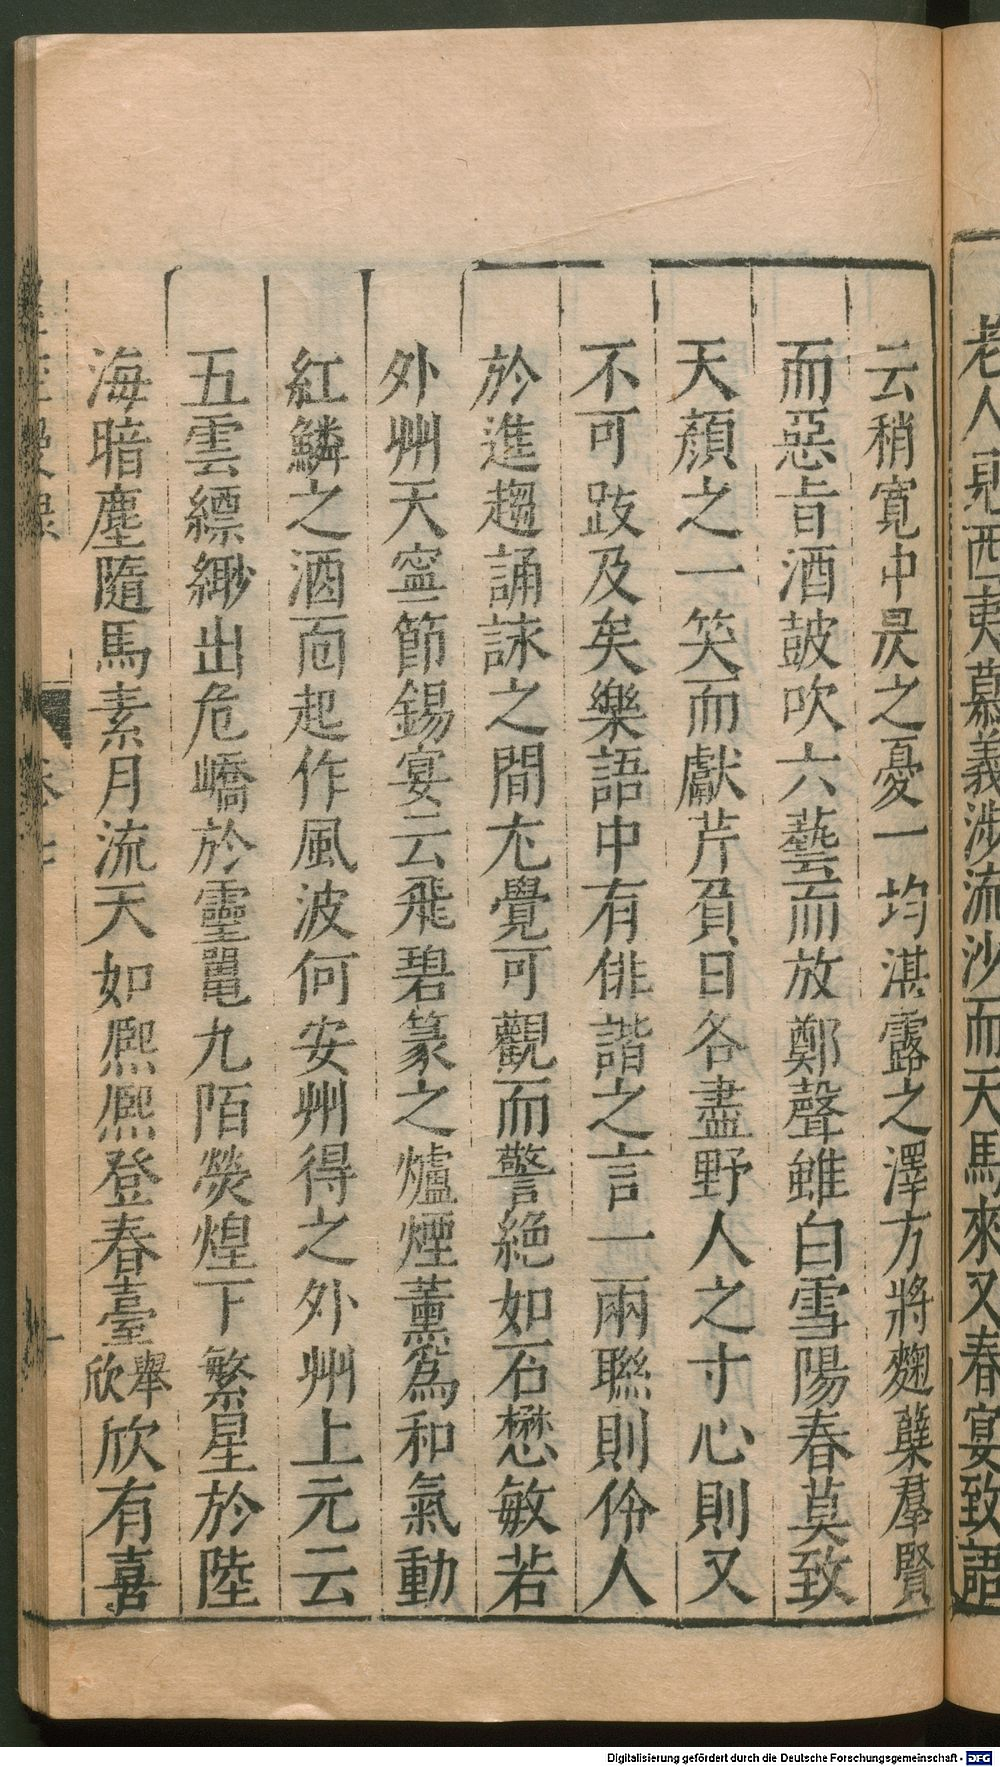 老人見西夷慕義涉流沙而天馬來又春宴致語
云稍寬中昃之憂一均湛露之澤方將麴糵羣賢
而惡旨酒鼓吹六藝而放鄭聲雖白雪陽春莫致
天顏之一笑而獻芹負日各盡野人之寸心則又
不可跂及矣樂語中有俳諧之言一兩聯則伶人
於進趨誦詠之間尤覺可觀而警絕如石懋敏若
外州天寧節錫宴云飛碧篆之爐煙薰爲和氣動
紅鱗之酒面起作風波何安州得之外州上元云
五雲縹緲出危嶠於靈鼂九陌熒煌下繁星於陸
海暗塵隨馬素月流天如熈熈登春臺舉欣欣有喜
卷十
Digitalisierung gefördert durch die Deutsche Forschungsgemeinschaft - DFG